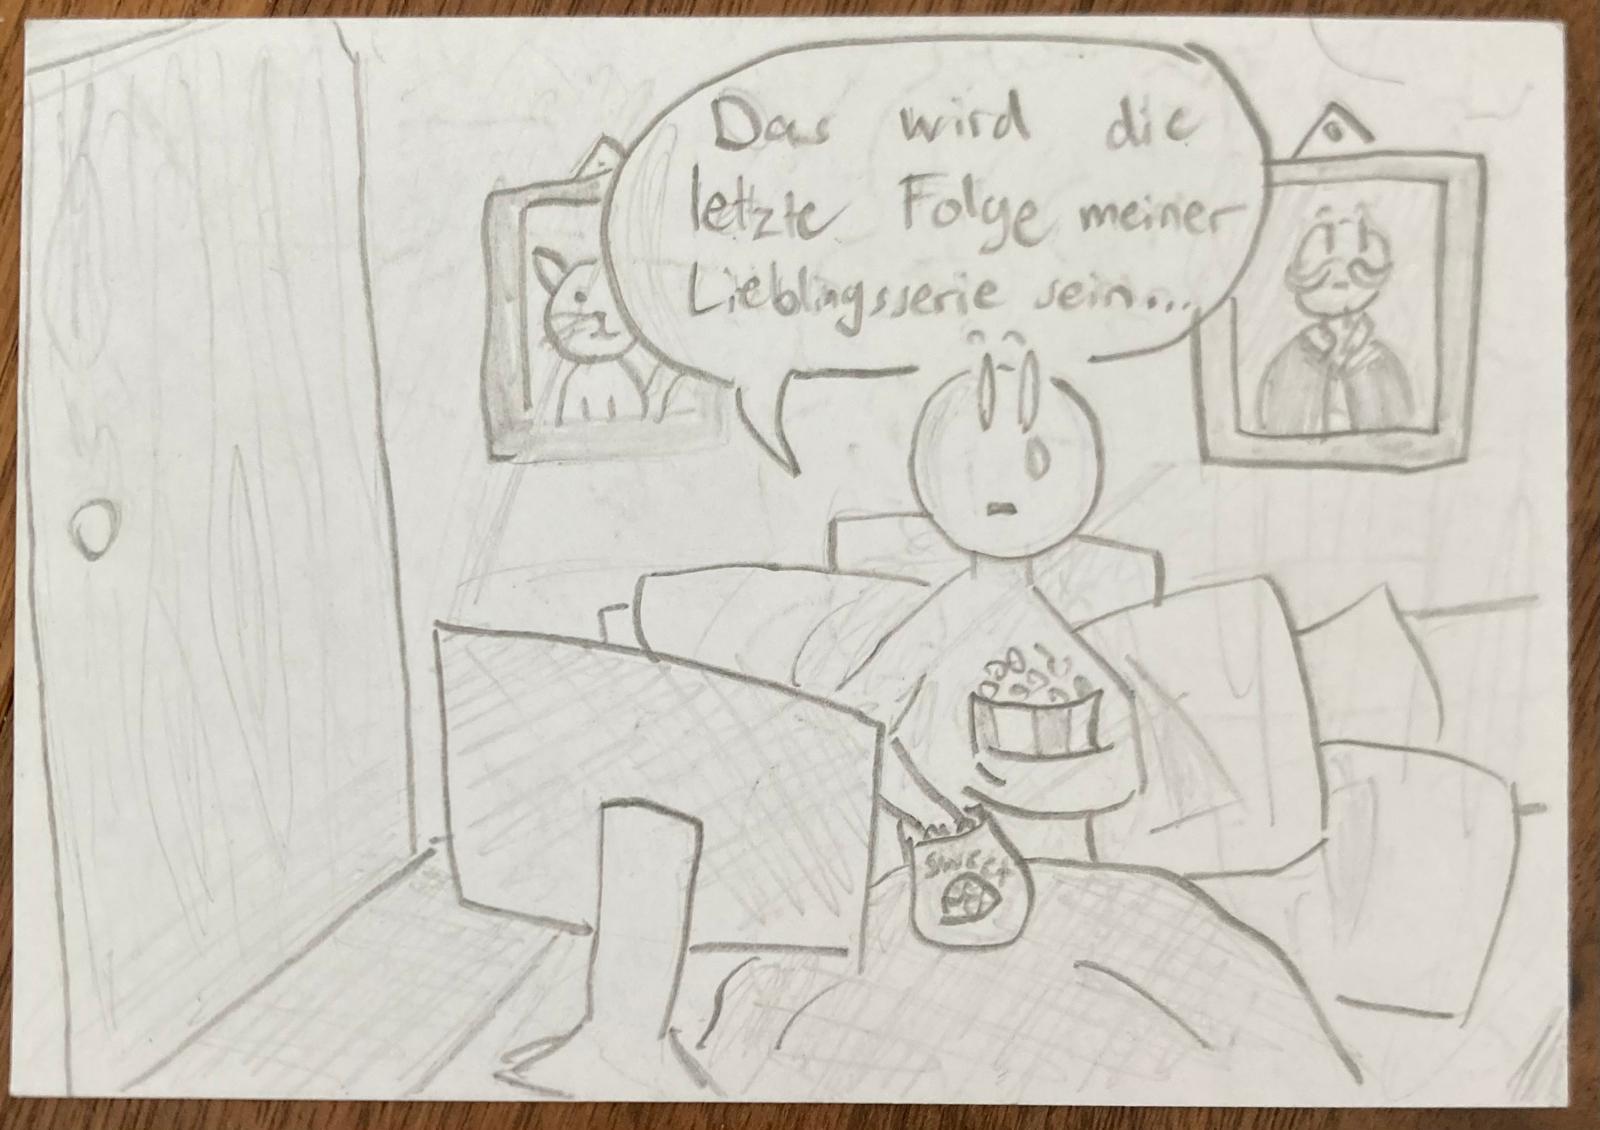 Das wird die
letzte Folge meiner
Lieblingsserie sein...
SWEET